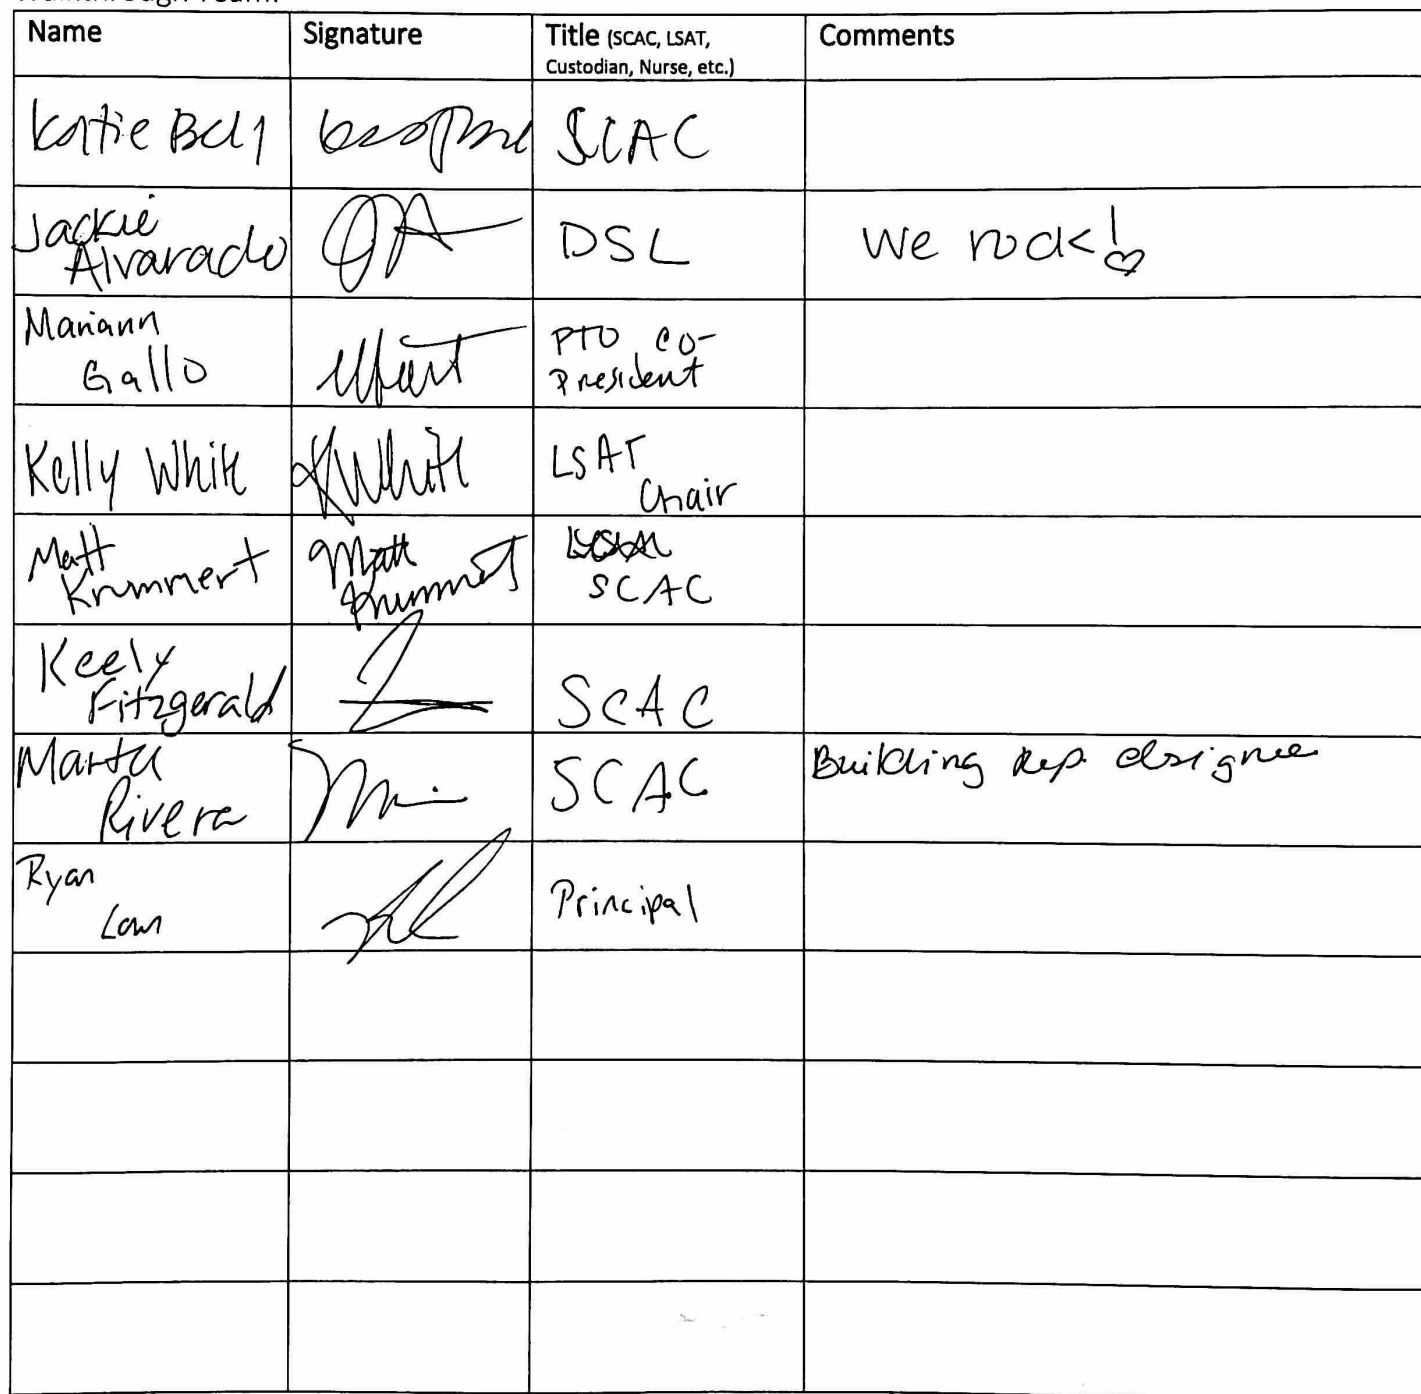 Walkthrough Team:
Name Signature Title (SCAC, LSAT, Custodian, Nurse, etc.) Comments
Katie SCAC
Jackie Alvarado DSL We rock!
Mariann Gallo PTO co-President
Kelly White KWhite LSAT Chair
Matt Krummert Matt Krummert SCAC
Keely Fitzgerald SCAC
Marta Rivera SCAC Building Rep. designee
Ryan Principal